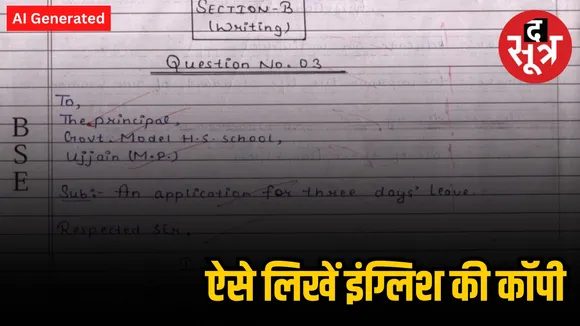 AI Generated
द
सूत्र
SECTION-B
(Writing)
Question No. 03
To,
The principal,
Govt. Model H.S. school,
Ujjain (M.P.)
Sub:- An application for three days' leave.
Respected Sir,
BSE
ऐसे लिखें इंग्लिश की कॉपी